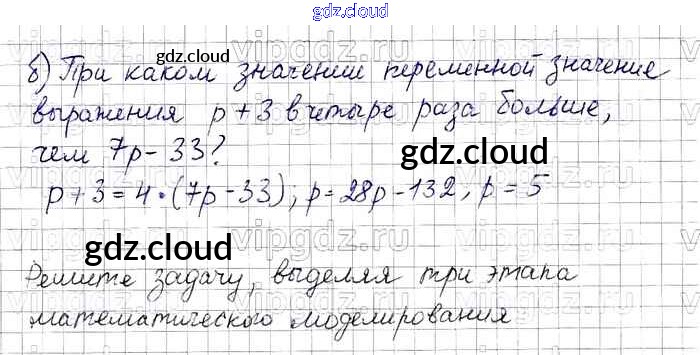 gdz.cloud
gdz.cloud
б) При каком значении переменной значение
выражения p + 3 в четыре раза больше,
чем 7p - 33?
gdz.cloud
p + 3 = 4 · (7p - 33); p = 28p - 132, p = 5
gdz.cloud
Решите задачу, выделяя три этапа
математического моделирования